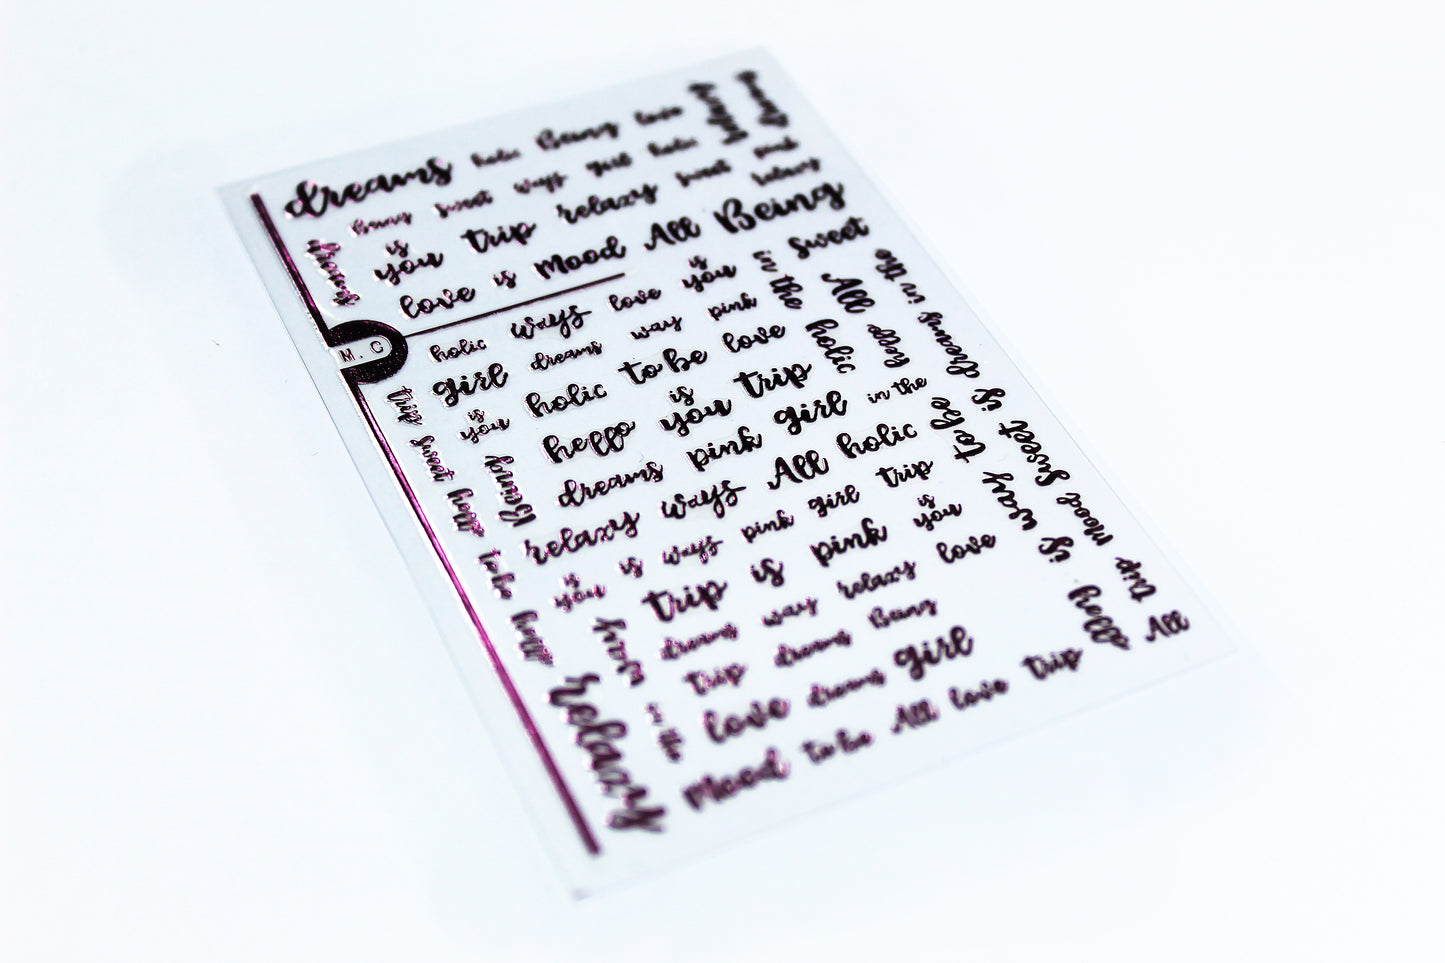 dreams holic Being love
Being sweet ways girl holic sweet pink
is
you trip relaxy relaxy
love is Mood All Being
dreams
M.C
holic ways love is you in the sweet
girl dreams way pink All
is
you holic to be love holic hello
hello is you trip
dreams pink girl in the
relaxy ways All holic to be
is
you is ways pink girl trip
trip is pink is you
dreams way relaxy love
trip dreams Being
love dreams girl
Mood to be All love trip hello All
trip sweet hello to be hello
Being
way
in the
relaxy
in the dreams is way is
sweet Mood trip